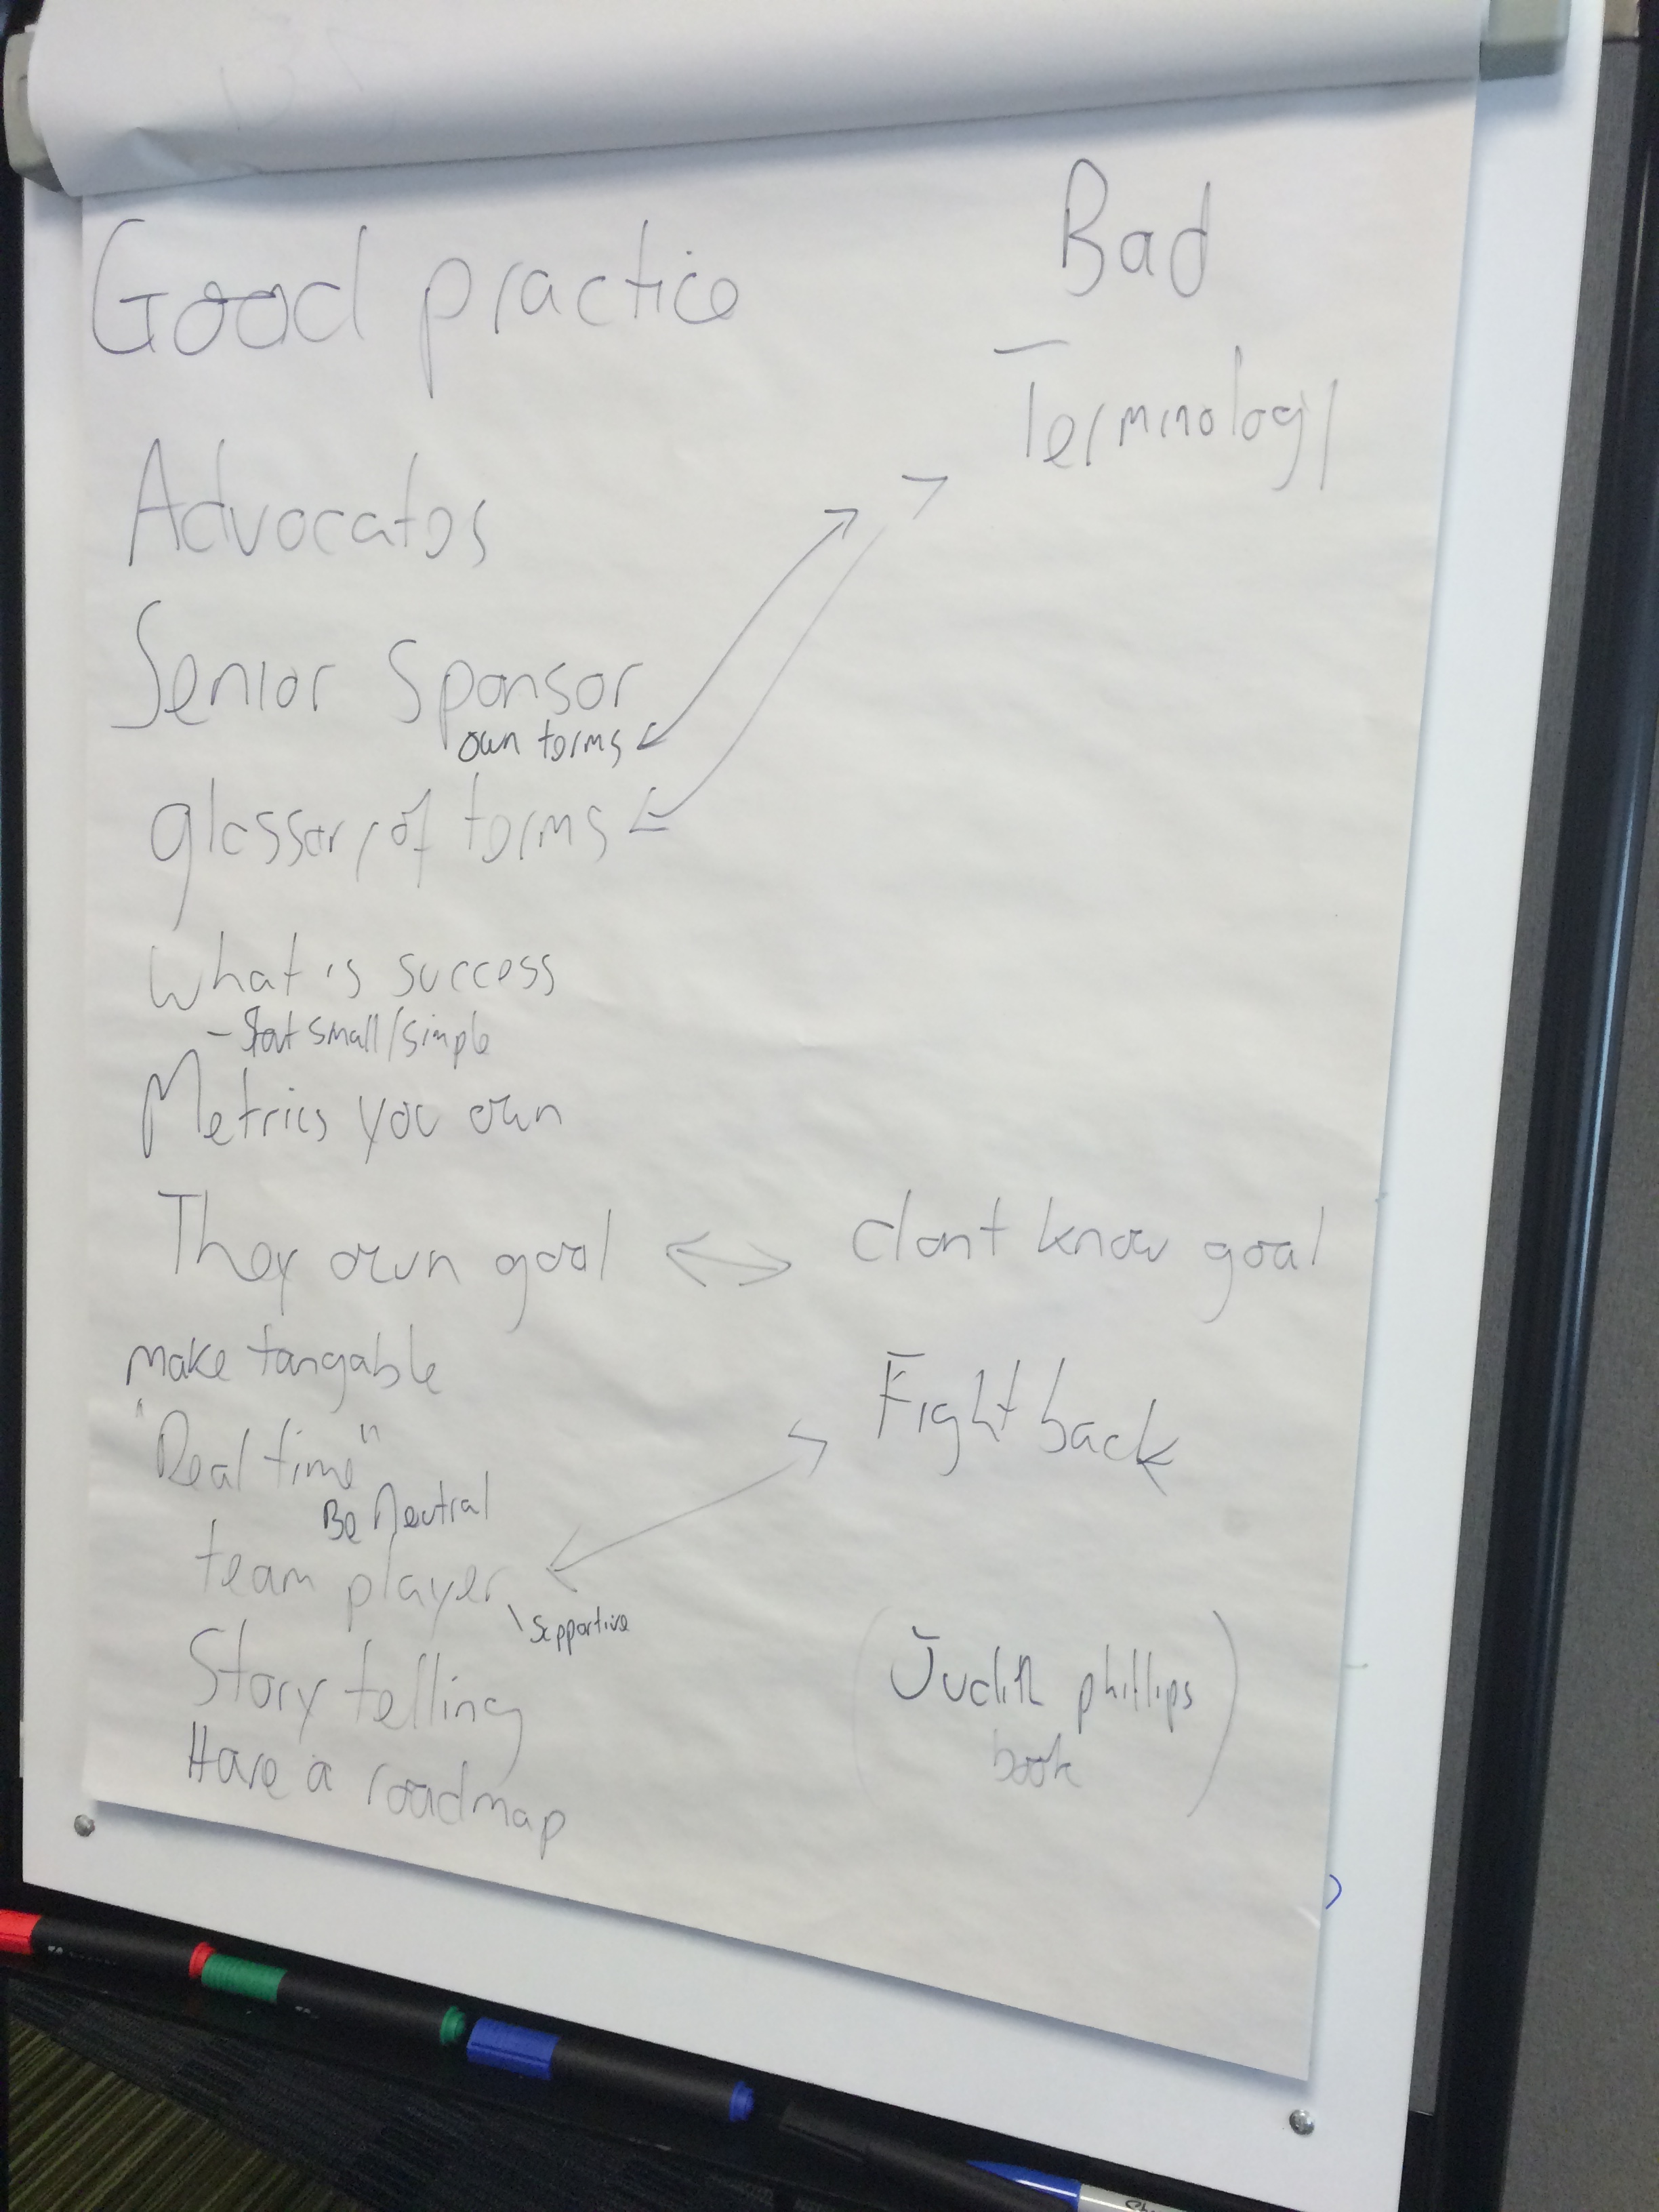 Good practice
Bad
Terminology
Advocates
Senior Sponsor
own terms
glossary of terms
what is success
- Start small/simple
Metrics you own
They own goal
dont know goal
make tangable
Fight back
"Real time"
Be Neutral
team player
supportive
Story telling
(Judith phillips
book)
Have a roadmap